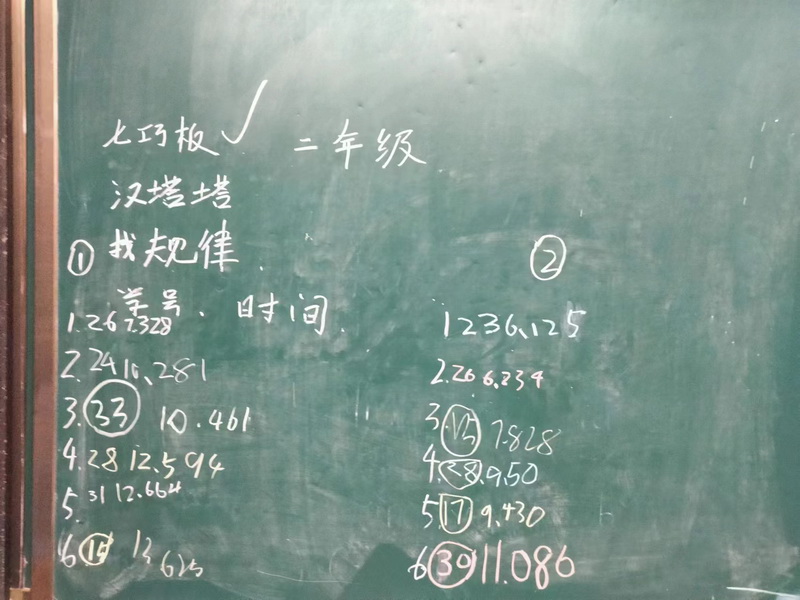 七巧板✓ 二年级
汉塔塔
① 找规律
学号、时间
1.26 7.328
2.24 10.281
3.33 10.461
4.28 12.594
5.31 12.664
6.15 13.625
②
1 23 6.125
2.26 6.234
3.15 7.828
4.28.9.50
5 17 9.430
6 30 11.086